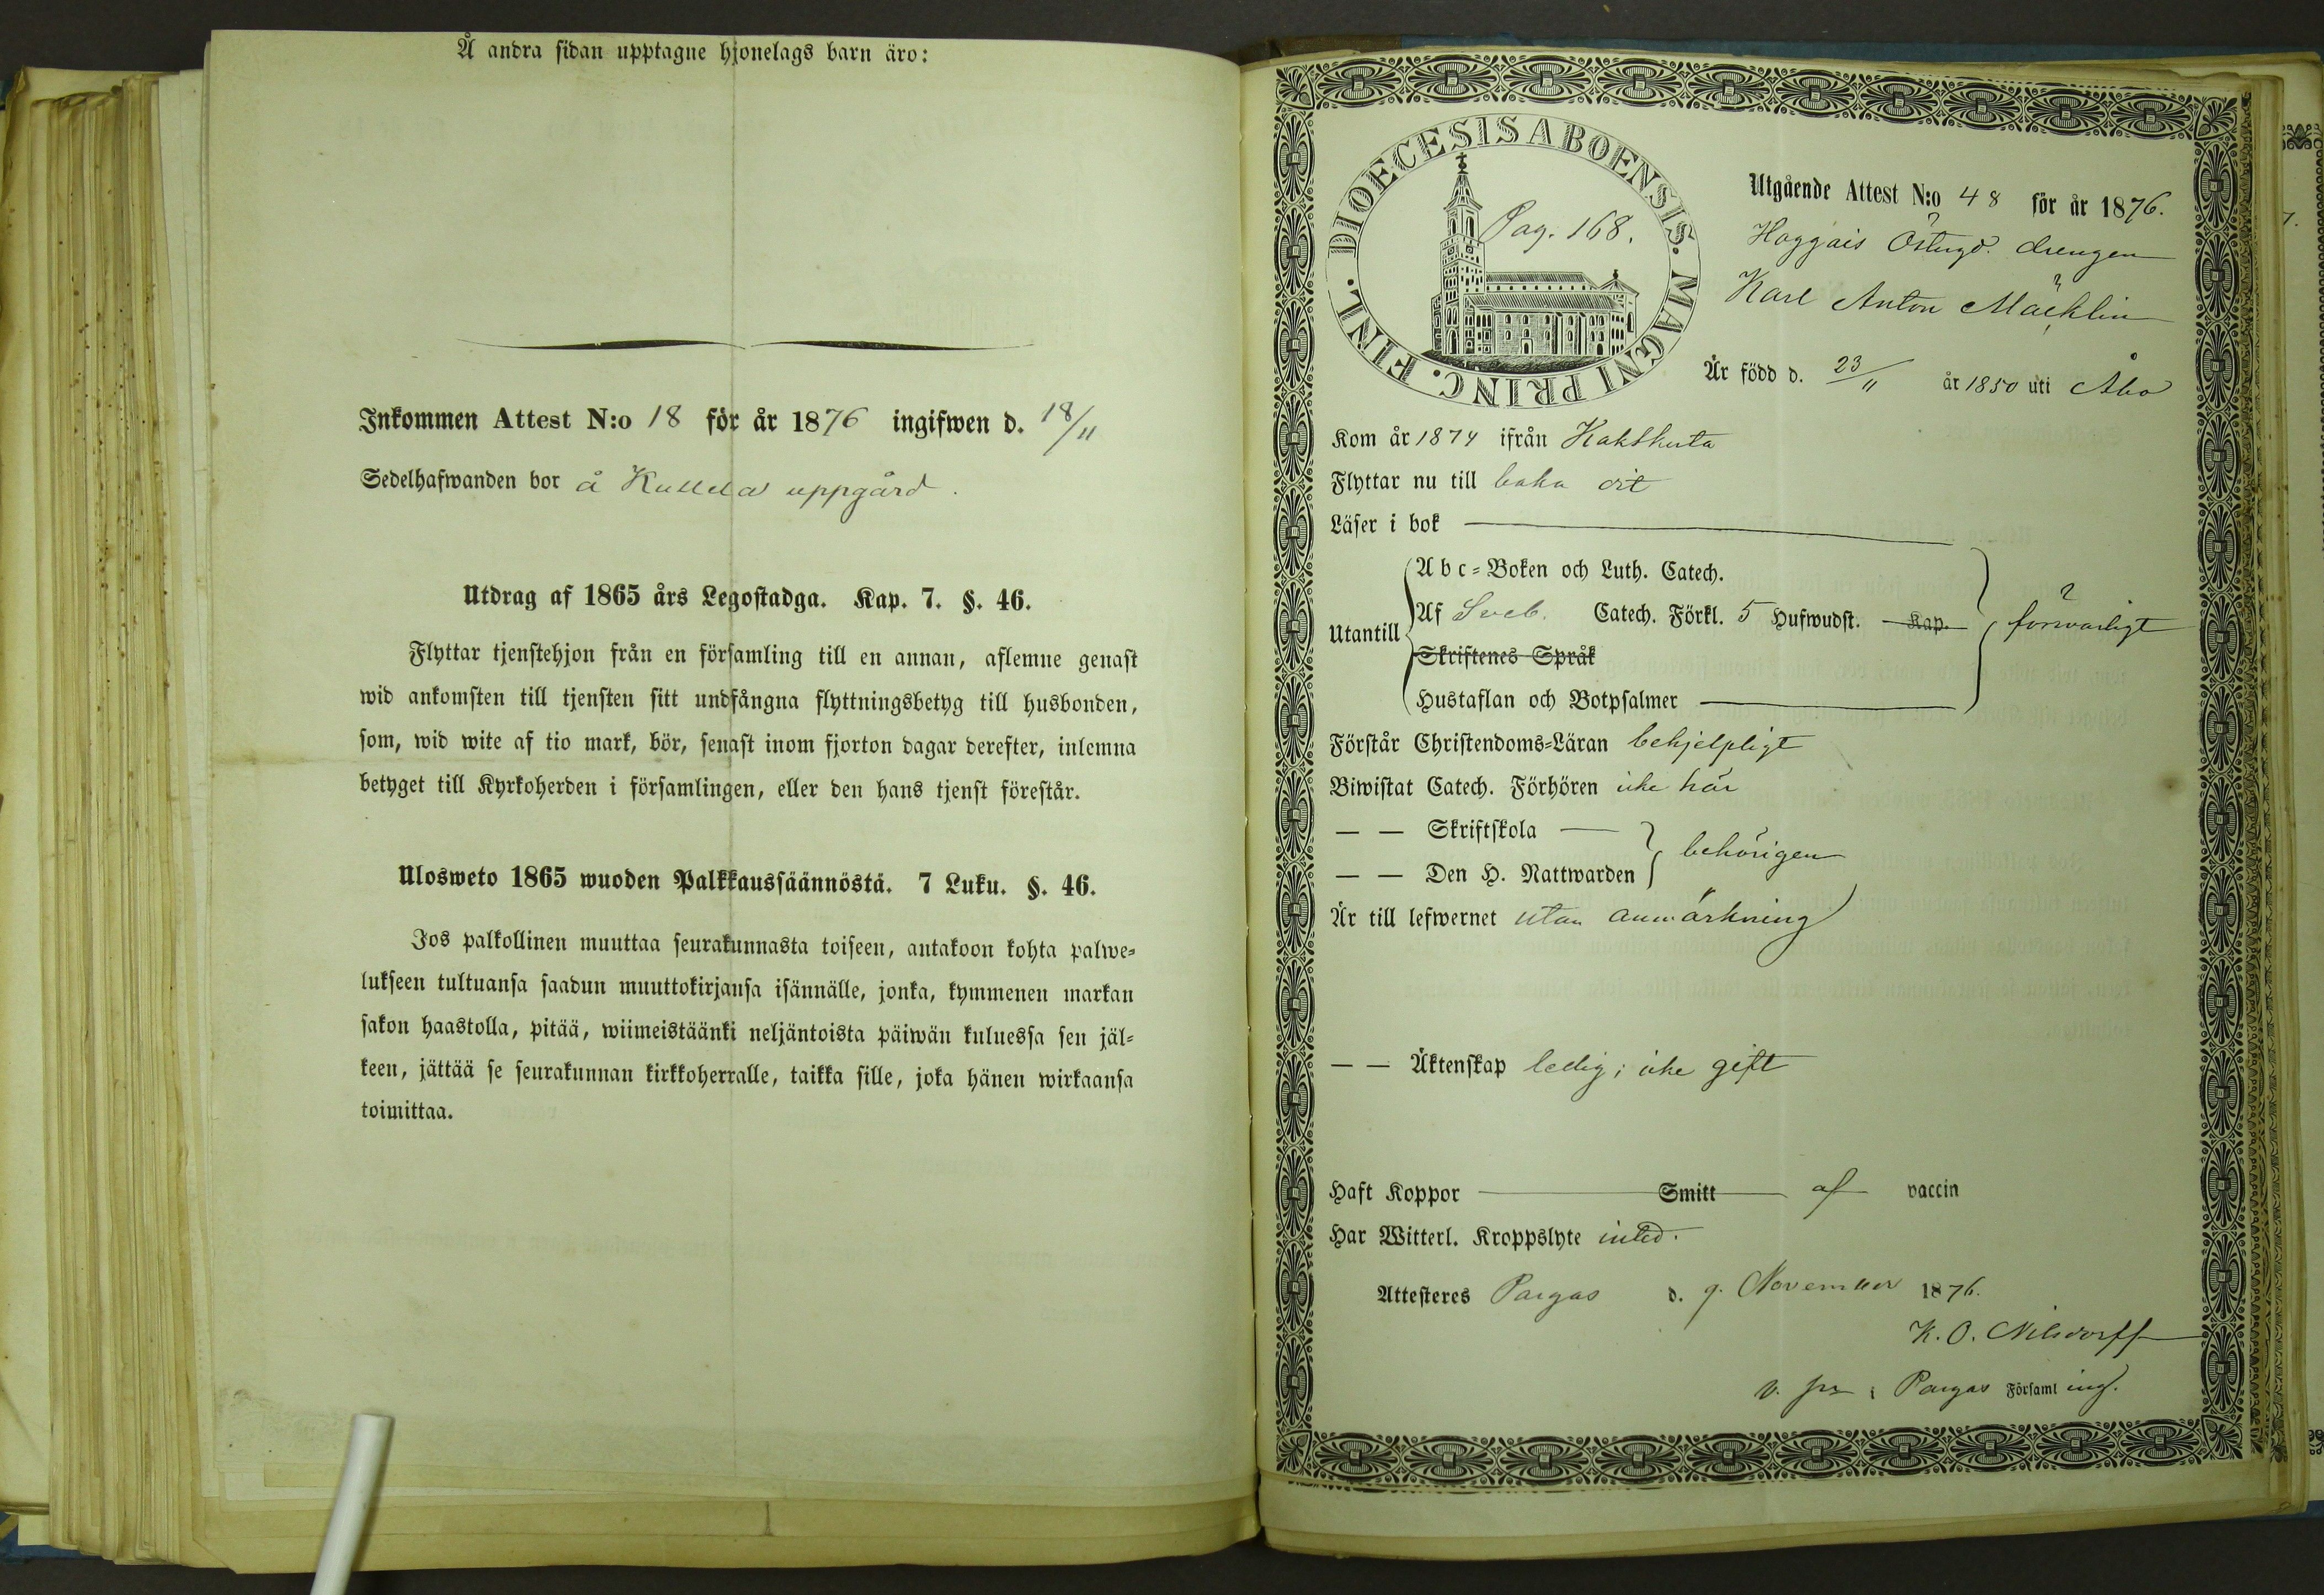 Å andra sidan upptagne hjonelags barn äro:
Inkommen Attest N:o 18 för år 1876 ingifwen d. 18/11
Sedelhafwanden bor å Kullela uppgård.
Utdrag af 1865 års Legostadga. Kap. 7. §. 46.
Flyttar tjenstehjon från en församling till en annan, aflemne genast
wid ankomsten till tjensten sitt undfångna flyttningsbetyg till husbonden,
som, wid wite af tio mark, bör, senast inom fjorton dagar derefter, inlemna
betyget till Kyrkoherden i församlingen, eller den hans tjenst förestår.
Ulosweto 1865 wuoden Palkkaussäännöstä. 7 Luku. §. 46.
Jos palkollinen muuttaa seurakunnasta toiseen, antakoon kohta palwe-
lukseen tultuansa saadun muuttokirjansa isännälle, jonka, kymmenen markan
sakon haastolla, pitää, wiimeistäänki neljäntoista päiwän kuluessa sen jäl-
keen, jättää se seurakunnan kirkkoherralle, taikka sille, joka hänen wirkaansa
toimittaa.
DIOECESIS ABOENSIS. MAGNI PRINC. FINL.
Pag. 168.
Utgående Attest N:o 48 för år 1876.
Haggais Östergd. drengen
Karl Anton Mäcklin
Är född d. 23/11 år 1850 uti Åbo
Kom år 1874 ifrån Kakskerta
Flyttar nu till baka dit
Läser i bok
Abc-Boken och Luth. Catech.
Utantill Af Sveb. Catech. Förkl. 5 Hufwudst. Kap. förswarligt
Skriftenes Språk
Hustaflan och Botpsalmer
Förstår Christendoms-Läran behjelpligt
Biwistat Catech. Förhören icke här
— — Skriftskola
— — Den H. Nattwarden behörigen
Är till lefwernet utan anmärkning
— — Äktenskap ledig; icke gift
Haft Koppor Smitt af vaccin
Har Witterl. Kroppslyte intet.
Attesteres Pargas d. 9. November 1876.
K. O. Nilsdorff
v. p. i Pargas Församling.